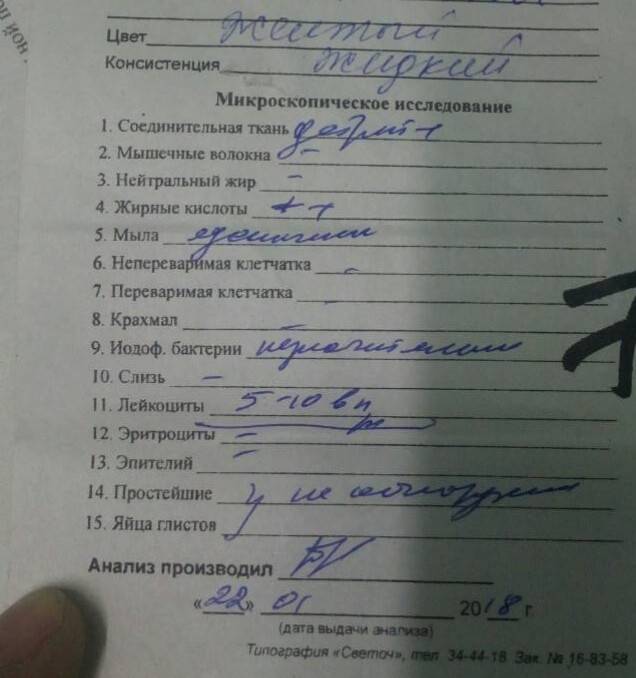 Цвет желтый
Консистенция жидкий
Микроскопическое исследование
1. Соединительная ткань детрит +
2. Мышечные волокна –
3. Нейтральный жир –
4. Жирные кислоты ++
5. Мыла единичн
6. Непереваримая клетчатка –
7. Переваримая клетчатка –
8. Крахмал –
9. Иодоф. бактерии незначительн
10. Слизь –
11. Лейкоциты 5-10 в п
12. Эритроциты –
13. Эпителий –
14. Простейшие } не обнаружен
15. Яйца глистов
Анализ производил
«22» 01 2018 г
(дата выдачи анализа)
Типография «Светоч», тел. 34-44-18 Зак. № 16-83-58